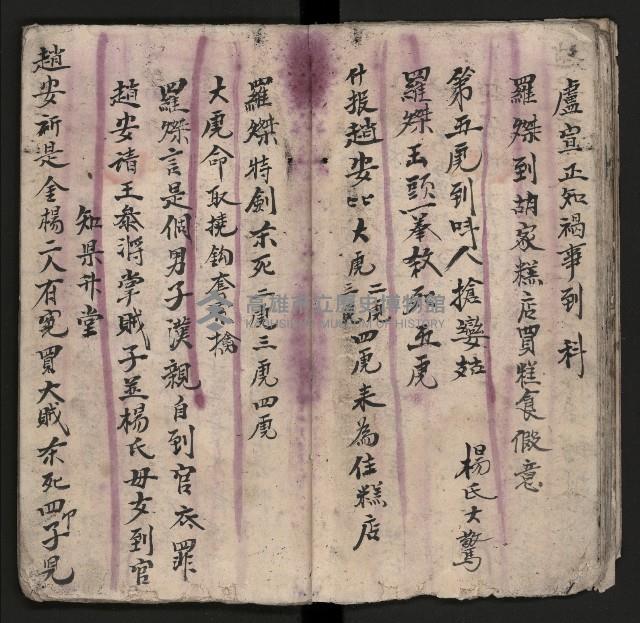 盧宣正知禍事到 科
羅燦到胡家糕店買糕食假意
第五虎到叫人搶孌姑 楊氏大驚
羅燦玉頭一拳敖死五虎
什报趙安比大虎二虎三虎四虎来為住糕店
羅燦特劍杀死二虎三虎四虎
大虎命取撓鈎套索擒
羅燦言是個男子漢親自到官衣罪
趙安請王叅將掌賊子並楊氏母女到官
知県升堂
趙安祈是金楊二人有冤買大賊杀死四子児
高雄市立歷史博物館
KAOHSIUNG MUSEUM OF HISTORY